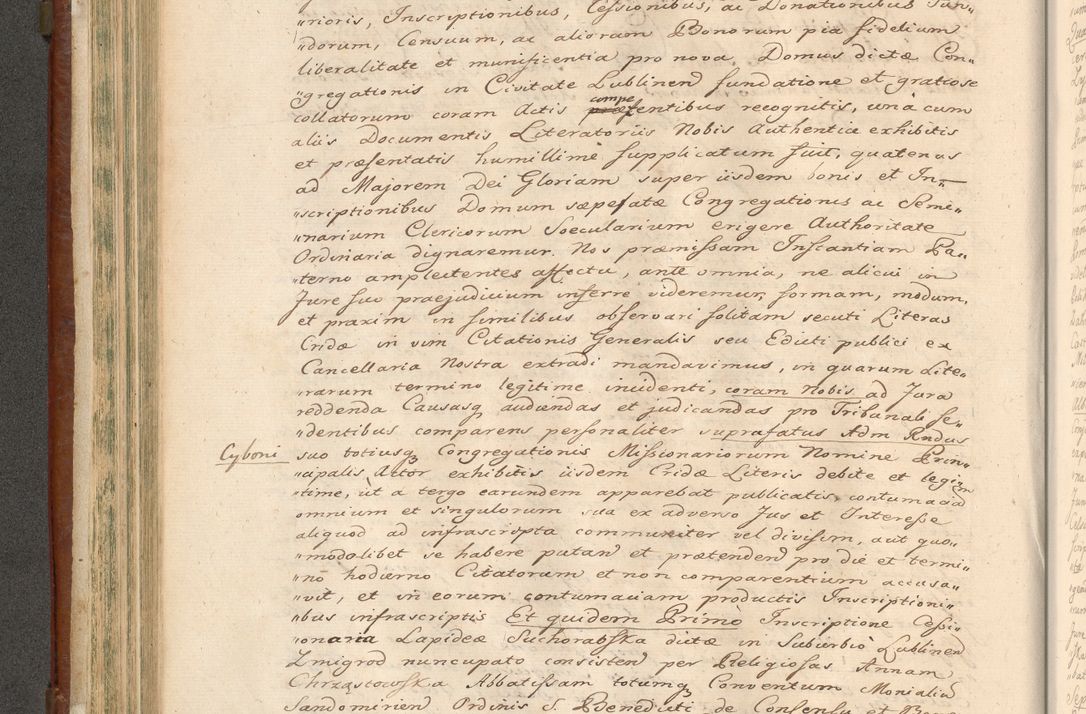 "rioris, Inscriptionibus, Cessionibus, ac Donationibus Fun„
"dorum, Censuum, ac aliorum Bonorum pia fidelium
liberalitate et munificentia pro nova Domus dictæ Con„
"gregationis in Civitate Lublinen fundatione et gratiose
collatorum coram Actis compe tentibus recognitis, unà cum
aliis Documentis Literatoriis Nobis Authentice exhibitis
et præsentatis humillimè supplicatum fuit, quatenus
ad Majorem Dei Gloriam super iisdem bonis et In„
"scriptionibus Domum sæpefatæ Congregationis ac Semi„
"narium Clericorum Sæcularium erigere Authoritate
Ordinaria dignaremur. Nos præmissam Instantiam Pa„
"terno amplectentes affectu, ante omnia, ne alicui in
Jure suo praejudicium inferre videremur, formam, modum,
et praxim in similibus observari solitam secuti Literas
Cridæ in vim Citationis Generalis seu Edicti publici ex
Cancellaria Nostra extradi mandavimus, in quarum Lite„
"rarum termino legitime incidenti, coram Nobis ad Jura
reddenda Causasq audiendas et judicandas pro Tribunali se„
"dentibus comparens personaliter suprafatus Adm Rndus
Cyboni suo totiusq Congregationis Missionariorum Nomine Prin„
"cipalis Actor exhibitis iisdem Cridæ Literis debite et legi„
"time, ùt a tergo earundem apparebat publicatis, contumaciam
omnium et singulorum sua ex adverso Jus et Interesse
aliquod ad infrascripta communiter vel divisim, aut quo„
"modolibet se habere putan et prætenden pro die et termi„
"no hodierno Citatorum et non comparentium accusa„
"vit, et in eorum contumaciam productis Inscriptioni„
"bus infrascriptis Et quidem Primò Inscriptione Cessi„
"onaria Lapideæ Suchorabska dictæ in Suburbio Lublinen
Zmigrod nuncupato consisten per Religiosas Annam
Chrząstowska Abbatissam totumq Conventum Monialiu
Sandomirien Ordinis S. Benedicti de Consensu et